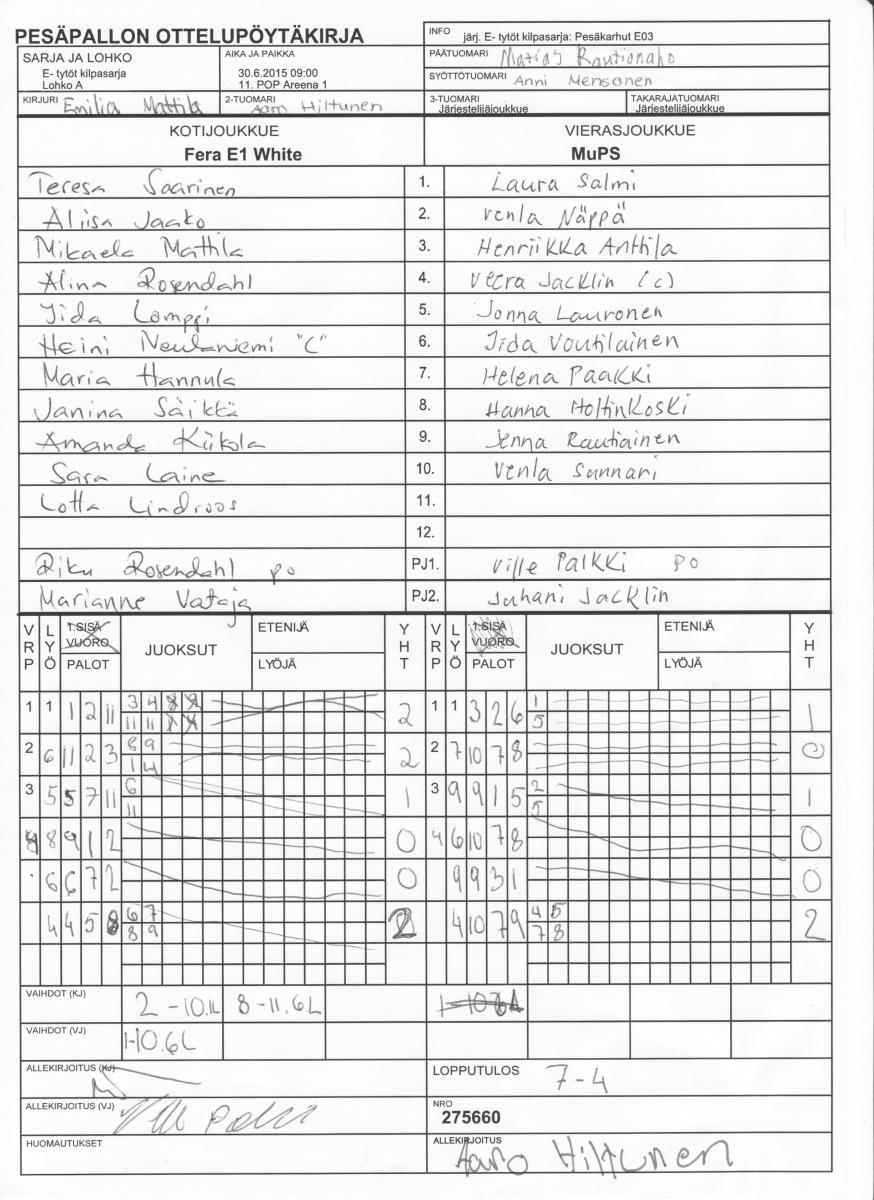 PESÄPALLON OTTELUPÖYTÄKIRJA
INFO järj. E- tytöt kilpasarja: Pesäkarhut E03
SARJA JA LOHKO
E- tytöt kilpasarja
Lohko A
AIKA JA PAIKKA
30.6.2015 09:00
11. POP Areena 1
PÄÄTUOMARI Matias Rautionaho
SYÖTTÖTUOMARI Anni Mensonen
KIRJURI Emilia Mattila
2-TUOMARI Aaro Hiltunen
3-TUOMARI
Järjestelijäjoukkue
TAKARAJATUOMARI
Järjestelijäjoukkue
KOTIJOUKKUE VIERASJOUKKUE
Fera E1 White MuPS
Teresa Saarinen 1. Laura Salmi
Aliisa Jaako 2. Venla Näppä
Mikaela Mattila 3. Henriikka Anttila
Alina Rosendahl 4. Veera Jacklin (c)
Iida Lomppi 5. Jonna Lauronen
Heini Neulaniemi "C" 6. Iida Voutilainen
Maria Hannula 7. Helena Paakki
Janina Säikkä 8. Hanna Holtinkoski
Amanda Kiikola 9. Jenna Rautiainen
Sara Laine 10. Venla Sunnari
Lotta Lindroos 11.
12.
Riku Rosendahl po PJ1. Ville Palkki po
Marianne Vataja PJ2. Juhani Jacklin
VRP LYÖ 1.SISÄ VUORO PALOT JUOKSUT ETENIJÄ LYÖJÄ YHT VRP LYÖ 1.SISÄ VUORO PALOT JUOKSUT ETENIJÄ LYÖJÄ YHT
1 1 1 2 11 3 4 8 9 2 1 1 3 2 6 1 1
11 11 1 4 5
2 6 11 2 3 8 9 2 2 7 10 7 8 0
1 4
3 5 5 7 11 6 1 3 9 9 1 5 2 1
11 5
4 8 9 1 2 0 4 6 10 7 8 0
6 6 7 2 0 9 9 3 1 0
4 4 5 8 6 7 2 4 10 7 9 4 5 2
8 9 7 8
VAIHDOT (KJ) 2 -10.1L 8 -11.6L
VAIHDOT (VJ) 1-10.6L
ALLEKIRJOITUS (KJ)
LOPPUTULOS 7-4
ALLEKIRJOITUS (VJ) Ville Palkki
NRO
275660
HUOMAUTUKSET
ALLEKIRJOITUS Aaro Hiltunen